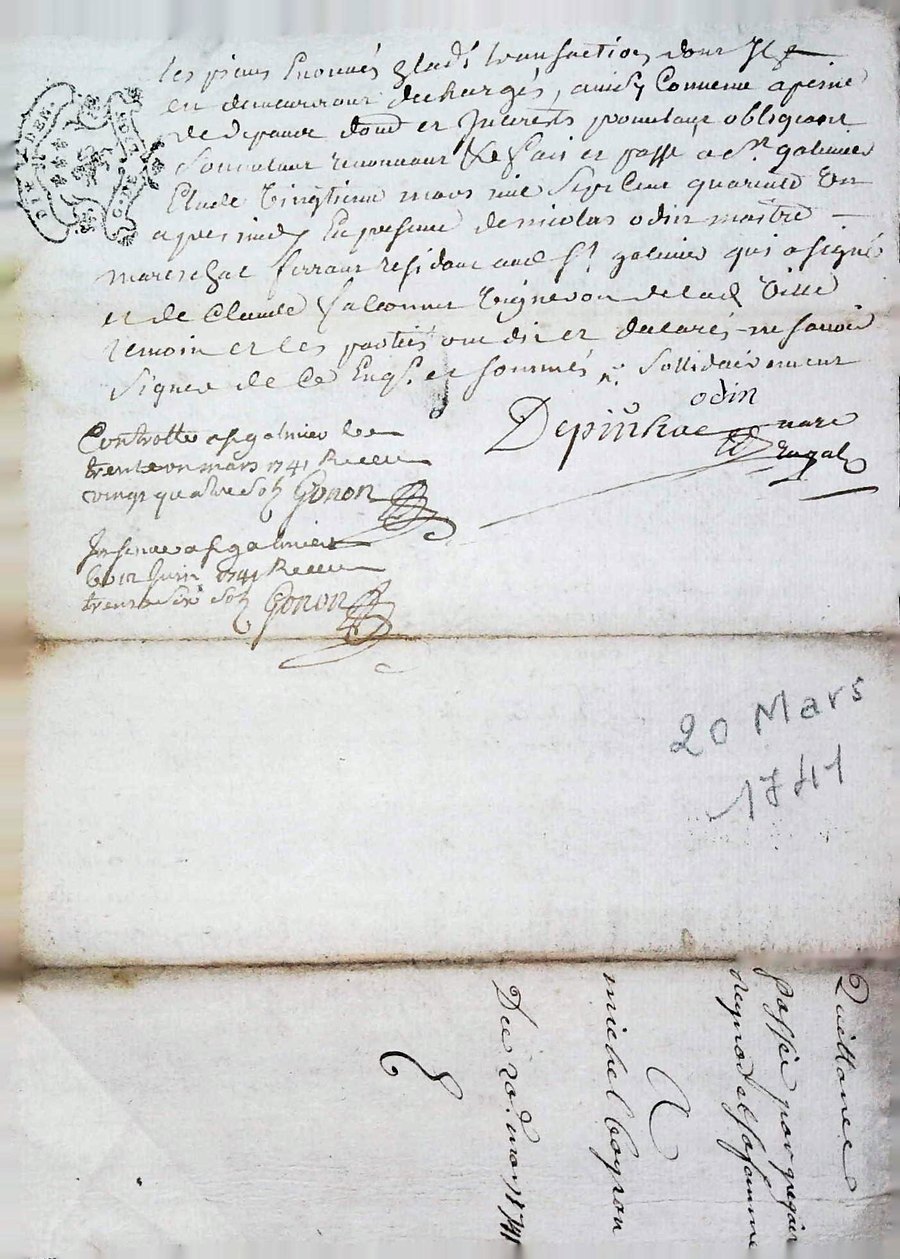 les pieces Enoncés & lad.^e transaction dont Ils
en demeurront dechargés, ainsy Convenu a peine
de depance dom^e et Interests pour leur obligeant
soumetant renonceant &c fait et passé a S^t galmier
Etude vingtieme mars mil sept cent quarante un
apres midy En presence de nicolas odin maitre
mareschal ferrant residant aud S^t galmier qui a signé
et de Claude falconnet vigneron de lad ville
temoin et les parties ont dit et declarés ne savoir
signer de ce Enq^s et sommés n^r Sollidairement
odin
Depinhac nore
Royal
Controlle a S^t galmier le
trente un mars 1741 Receu
vingt quatre sols Gonon
Insinué a S^t galmier
le 12 Juin 1741 Receu
trente six sols Gonon
20 Mars
1741
Quittance
passée par
et sa famme
A
michel Coyron
Du 20^e mars 1741